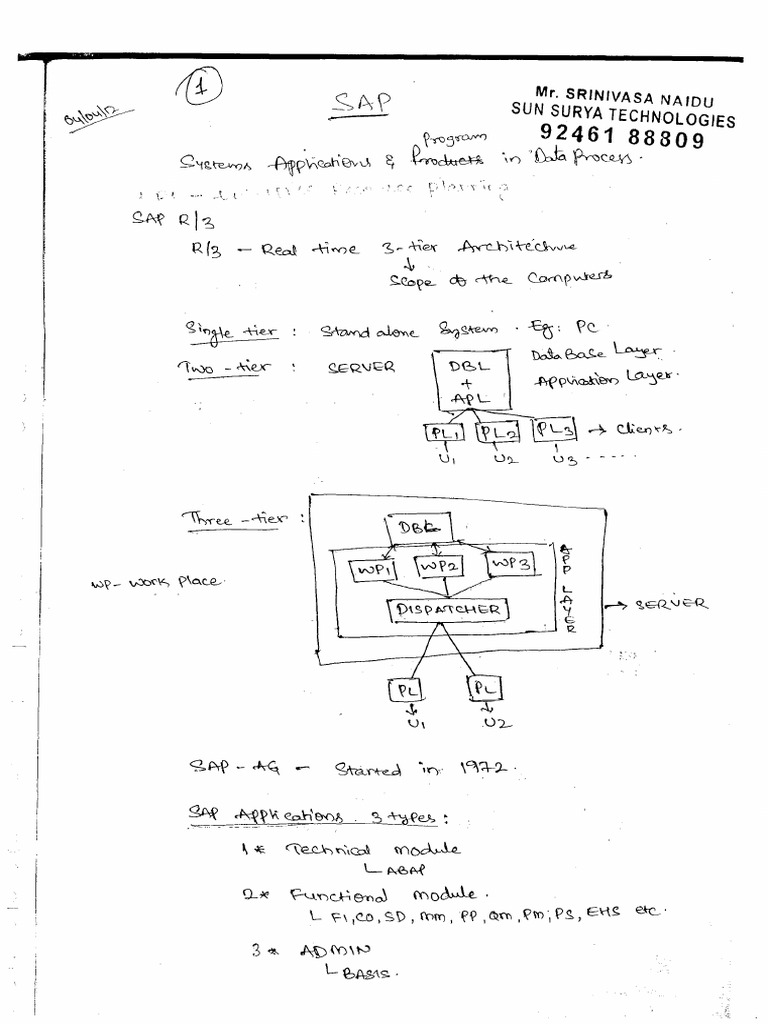 04/04/12
1
SAP
Mr. SRINIVASA NAIDU
SUN SURYA TECHNOLOGIES
92461 88809
Program
Systems Applications & Products in Data Process.
planning
SAP R/3
R/3 – Real time 3-tier Architecture
↓
Scope of the Computers
Single tier : Stand alone System . Eg: PC
Two-tier : SERVER
DBL
+
APL
DataBase Layer.
Application Layer.
PL1 PL2 PL3 → Clients.
U1 U2 U3 .....
Three-tier :
DBL
WP1 WP2 WP3
APP LAYER
WP- Work Place.
DISPATCHER
→ SERVER
PL PL
U1 U2
SAP - AG – Started in 1972.
SAP Applications. 3 types:
1* Technical module
ABAP
2* Functional module.
FI, CO, SD, MM, PP, QM, PM; PS, EHS etc.
3* ADMIN
BASIS.